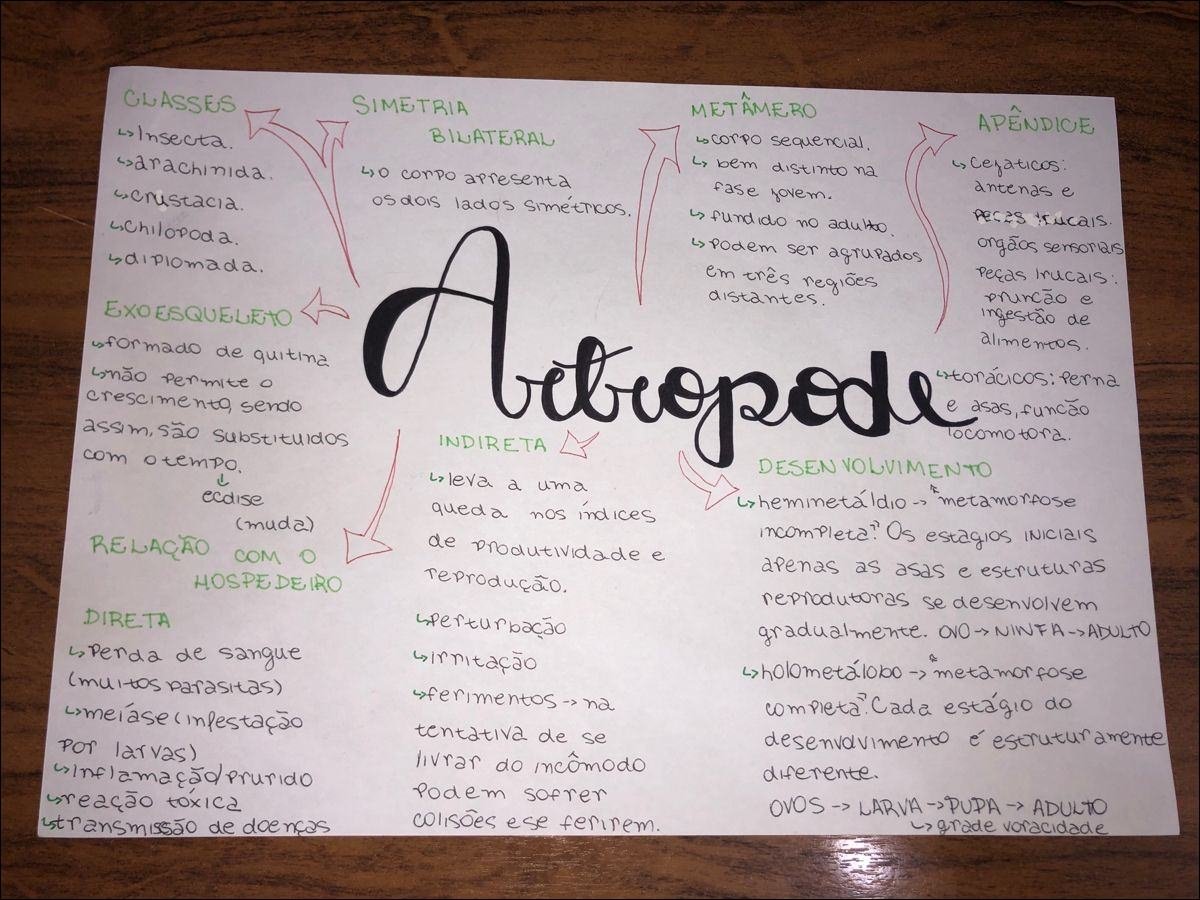 CLASSES
↳Insecta.
↳arachinida.
↳crustacia.
↳chilopoda.
↳diplomada.
SIMETRIA
BILATERAL
↳o corpo apresenta
os dois lados simétricos.
METÂMERO
↳corpo sequencial.
↳bem distinto na
fase jovem.
↳fundido no adulto.
↳podem ser agrupados
em três regiões
distantes.
APÊNDICE
↳Cefaticos:
antenas e
orgãos sensoriais
peças brucais:
pruncão e
ingestão de
alimentos.
↳torácicos: perna
e asas, funcão
locomotora.
Artropode
EXOESQUELETO
↳formado de quitina
↳não permite o
crescimento, sendo
assim, são substituidos
com o tempo.
↓
ecdise
(muda)
RELAÇÃO COM O
HOSPEDEIRO
DIRETA
↳perda de sangue
(muitos parasitas)
↳meíase (infestação
por larvas)
↳inflamação/prurido
↳reação tóxica
↳transmissão de doenças
INDIRETA
↳leva a uma
queda nos índices
de produtividade e
reprodução.
↳perturbação
↳irritação
↳ferimentos → na
tentativa de se
livrar do incômodo
podem sofrer
colisões e se ferirem.
DESENVOLVIMENTO
↳hemimetáldio → "metamorfose
incompleta". Os estágios iniciais
apenas as asas e estruturas
reprodutoras se desenvolvem
gradualmente. OVO → NINFA → ADULTO
↳holometálobo → "metamorfose
completa". Cada estágio do
desenvolvimento é estruturamente
diferente.
OVOS → LARVA → PUPA → ADULTO
↳grade voracidade